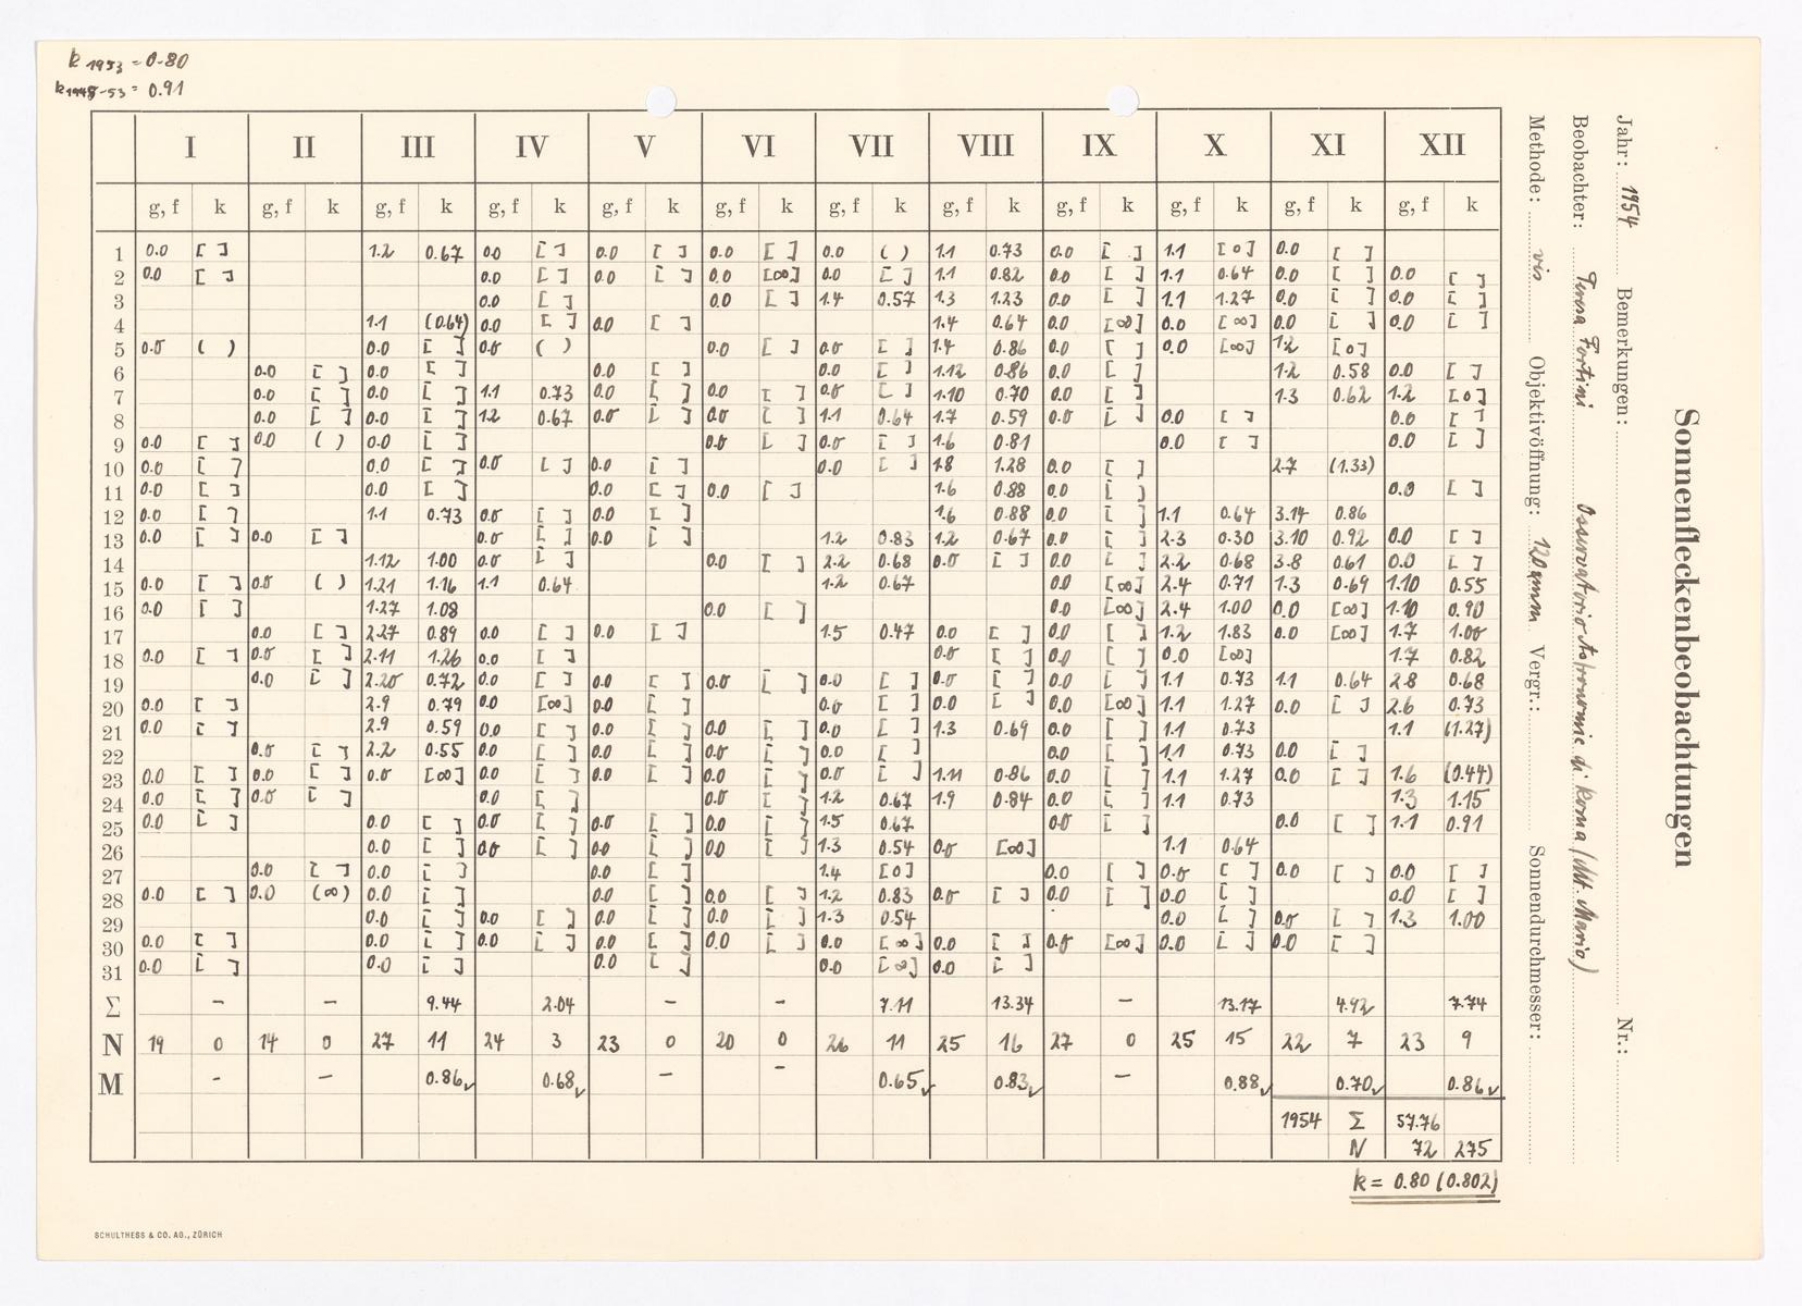 k 1953 = 0.80
k 1948-53 = 0.91
Sonnenfleckenbeobachtungen
Jahr: 1954 Bemerkungen: Nr.:
Beobachter: Teresa Fortini Osservatorio Astronomic di Roma (Mt. Mario)
Methode: vis Objektivöffnung: 120 mm Vergr.: Sonnendurchmesser:
I II III IV V VI VII VIII IX X XI XII
g, f k g, f k g, f k g, f k g, f k g, f k g, f k g, f k g, f k g, f k g, f k g, f k
1 0.0 [ ] 1.2 0.67 0.0 [ ] 0.0 [ ] 0.0 [ ] 0.0 ( ) 1.1 0.73 0.0 [ ] 1.1 [0] 0.0 [ ]
2 0.0 [ ] 0.0 [ ] 0.0 [ ] 0.0 [∞] 0.0 [ ] 1.1 0.82 0.0 [ ] 1.1 0.64 0.0 [ ] 0.0 [ ]
3 0.0 [ ] 0.0 [ ] 1.4 0.57 1.3 1.23 0.0 [ ] 1.1 1.27 0.0 [ ] 0.0 [ ]
4 1.1 (0.64) 0.0 [ ] 0.0 [ ] 1.4 0.64 0.0 [∞] 0.0 [∞] 0.0 [ ] 0.0 [ ]
5 0.0 ( ) 0.0 [ ] 0.0 ( ) 0.0 [ ] 0.0 [ ] 1.4 0.86 0.0 [ ] 0.0 [∞] 1.2 [0]
6 0.0 [ ] 0.0 [ ] 0.0 [ ] 0.0 [ ] 1.12 0.86 0.0 [ ] 1.2 0.58 0.0 [ ]
7 0.0 [ ] 0.0 [ ] 1.1 0.73 0.0 [ ] 0.0 [ ] 0.0 [ ] 1.10 0.70 0.0 [ ] 1.3 0.62 1.2 [0]
8 0.0 [ ] 0.0 [ ] 1.2 0.67 0.0 [ ] 0.0 [ ] 1.1 0.64 1.7 0.59 0.0 [ ] 0.0 [ ] 0.0 [ ]
9 0.0 [ ] 0.0 ( ) 0.0 [ ] 0.0 [ ] 0.0 [ ] 1.6 0.81 0.0 [ ] 0.0 [ ]
10 0.0 [ ] 0.0 [ ] 0.0 [ ] 0.0 [ ] 0.0 [ ] 1.8 1.28 0.0 [ ] 2.7 (1.33)
11 0.0 [ ] 0.0 [ ] 0.0 [ ] 0.0 [ ] 1.6 0.88 0.0 [ ] 0.0 [ ]
12 0.0 [ ] 1.1 0.73 0.0 [ ] 0.0 [ ] 1.6 0.88 0.0 [ ] 1.1 0.64 3.14 0.86
13 0.0 [ ] 0.0 [ ] 0.0 [ ] 0.0 [ ] 1.2 0.83 1.2 0.67 0.0 [ ] 2.3 0.30 3.10 0.92 0.0 [ ]
14 1.12 1.00 0.0 [ ] 0.0 [ ] 2.2 0.68 0.0 [ ] 0.0 [ ] 2.2 0.68 3.8 0.61 0.0 [ ]
15 0.0 [ ] 0.0 ( ) 1.21 1.16 1.1 0.64 1.2 0.67 0.0 [∞] 2.4 0.71 1.3 0.69 1.10 0.55
16 0.0 [ ] 1.27 1.08 0.0 [ ] 0.0 [∞] 2.4 1.00 0.0 [∞] 1.10 0.90
17 0.0 [ ] 2.27 0.89 0.0 [ ] 0.0 [ ] 1.5 0.47 0.0 [ ] 0.0 [ ] 1.2 1.83 0.0 [∞] 1.7 1.00
18 0.0 [ ] 0.0 [ ] 2.11 1.26 0.0 [ ] 0.0 [ ] 0.0 [ ] 0.0 [∞] 1.7 0.82
19 0.0 [ ] 2.20 0.72 0.0 [ ] 0.0 [ ] 0.0 [ ] 0.0 [ ] 0.0 [ ] 0.0 [ ] 1.1 0.73 1.1 0.64 2.8 0.68
20 0.0 [ ] 2.9 0.79 0.0 [∞] 0.0 [ ] 0.0 [ ] 0.0 [ ] 0.0 [∞] 1.1 1.27 0.0 [ ] 2.6 0.73
21 0.0 [ ] 2.9 0.59 0.0 [ ] 0.0 [ ] 0.0 [ ] 0.0 [ ] 1.3 0.69 0.0 [ ] 1.1 0.73 1.1 (1.27)
22 0.0 [ ] 2.2 0.55 0.0 [ ] 0.0 [ ] 0.0 [ ] 0.0 [ ] 0.0 [ ] 1.1 0.73 0.0 [ ]
23 0.0 [ ] 0.0 [ ] 0.0 [∞] 0.0 [ ] 0.0 [ ] 0.0 [ ] 0.0 [ ] 1.11 0.86 0.0 [ ] 1.1 1.27 0.0 [ ] 1.6 (0.44)
24 0.0 [ ] 0.0 [ ] 0.0 [ ] 0.0 [ ] 1.2 0.67 1.9 0.84 0.0 [ ] 1.1 0.73 1.3 1.15
25 0.0 [ ] 0.0 [ ] 0.0 [ ] 0.0 [ ] 0.0 [ ] 1.5 0.67 0.0 [ ] 0.0 [ ] 1.1 0.91
26 0.0 [ ] 0.0 [ ] 0.0 [ ] 0.0 [ ] 1.3 0.54 0.0 [∞] 1.1 0.64
27 0.0 [ ] 0.0 [ ] 0.0 [ ] 1.4 [0] 0.0 [ ] 0.0 [ ] 0.0 [ ] 0.0 [ ]
28 0.0 [ ] 0.0 (∞) 0.0 [ ] 0.0 [ ] 0.0 [ ] 1.2 0.83 0.0 [ ] 0.0 [ ] 0.0 [ ] 0.0 [ ]
29 0.0 [ ] 0.0 [ ] 0.0 [ ] 0.0 [ ] 1.3 0.54 0.0 [ ] 0.0 [ ] 1.3 1.00
30 0.0 [ ] 0.0 [ ] 0.0 [ ] 0.0 [ ] 0.0 [ ] 0.0 [∞] 0.0 [ ] 0.0 [∞] 0.0 [ ] 0.0 [ ]
31 0.0 [ ] 0.0 [ ] 0.0 [ ] 0.0 [∞] 0.0 [ ]
Σ – – 9.44 2.04 – – 7.11 13.34 – 13.17 4.92 7.74
N 19 0 14 0 27 11 24 3 23 0 20 0 26 11 25 16 27 0 25 15 22 7 23 9
M - – 0.86✓ 0.68✓ – – 0.65✓ 0.83✓ – 0.88✓ 0.70✓ 0.86✓
1954 Σ 57.76
N 72 275
k = 0.80 (0.802)
SCHULTHESS & CO. AG., ZÜRICH